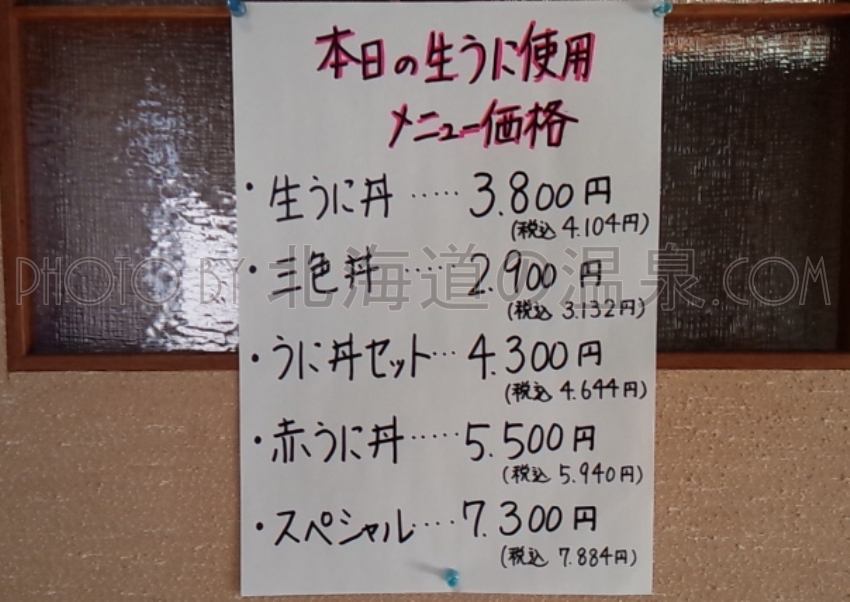 本日の生うに使用
メニュー価格
・生うに丼‥‥‥3.800円
(税込 4.104円)
・三色丼‥‥‥2.900円
(税込 3.132円)
・うに丼セット‥‥4.300円
(税込 4.644円)
・赤うに丼‥‥‥5.500円
(税込 5.940円)
・スペシャル‥‥7.300円
(税込 7.884円)
PHOTO BY 北海道の温泉.COM